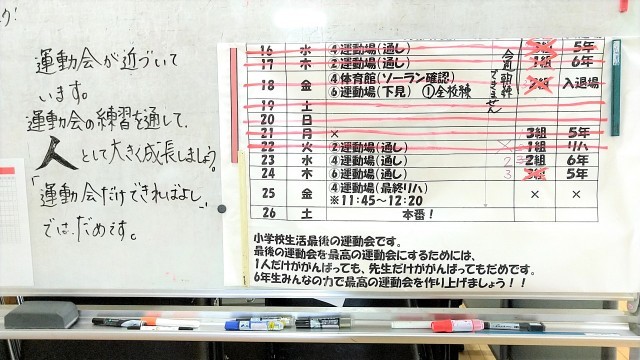 運動会が近づいて
います。
運動会の練習を通して、
人として大きく成長しましょう。
「運動会だけできればよし」
では、だめです。
16 水 ④運動場(通し) 3組 5年
17 木 ②運動場(通し) 1組 6年
18 金 ④体育館(ソーラン確認) 2組 入退場
⑥運動場(下見) ①全校練
今週朝練できません
19 土
20 日
21 月 × 3組 5年
22 火 ②運動場(通し) 1組 リハ
23 水 ④運動場(通し) 2 2組 6年
24 木 ⑥運動場(通し) 3 3組 5年
25 金 ④運動場(最終リハ) × ×
※11:45~12:20
26 土 本番!
小学校生活最後の運動会です。
最後の運動会を最高の運動会にするためには、
1人だけががんばっても、先生だけががんばってもだめです。
6年生みんなの力で最高の運動会を作り上げましょう!!